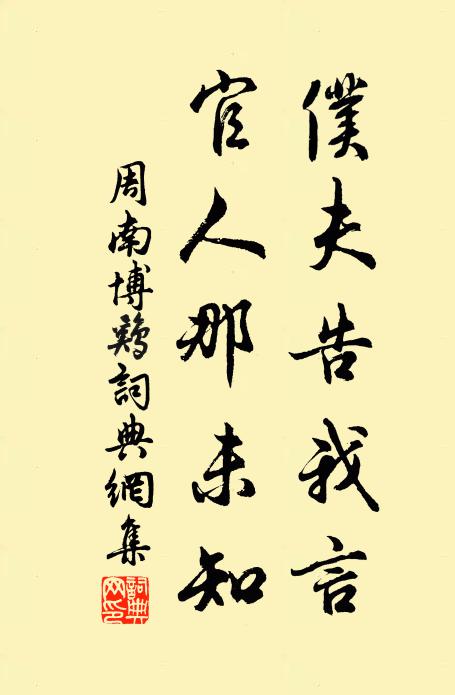 僕夫告我言
官人那未知
周南博鷄詞典網集
詞典網印